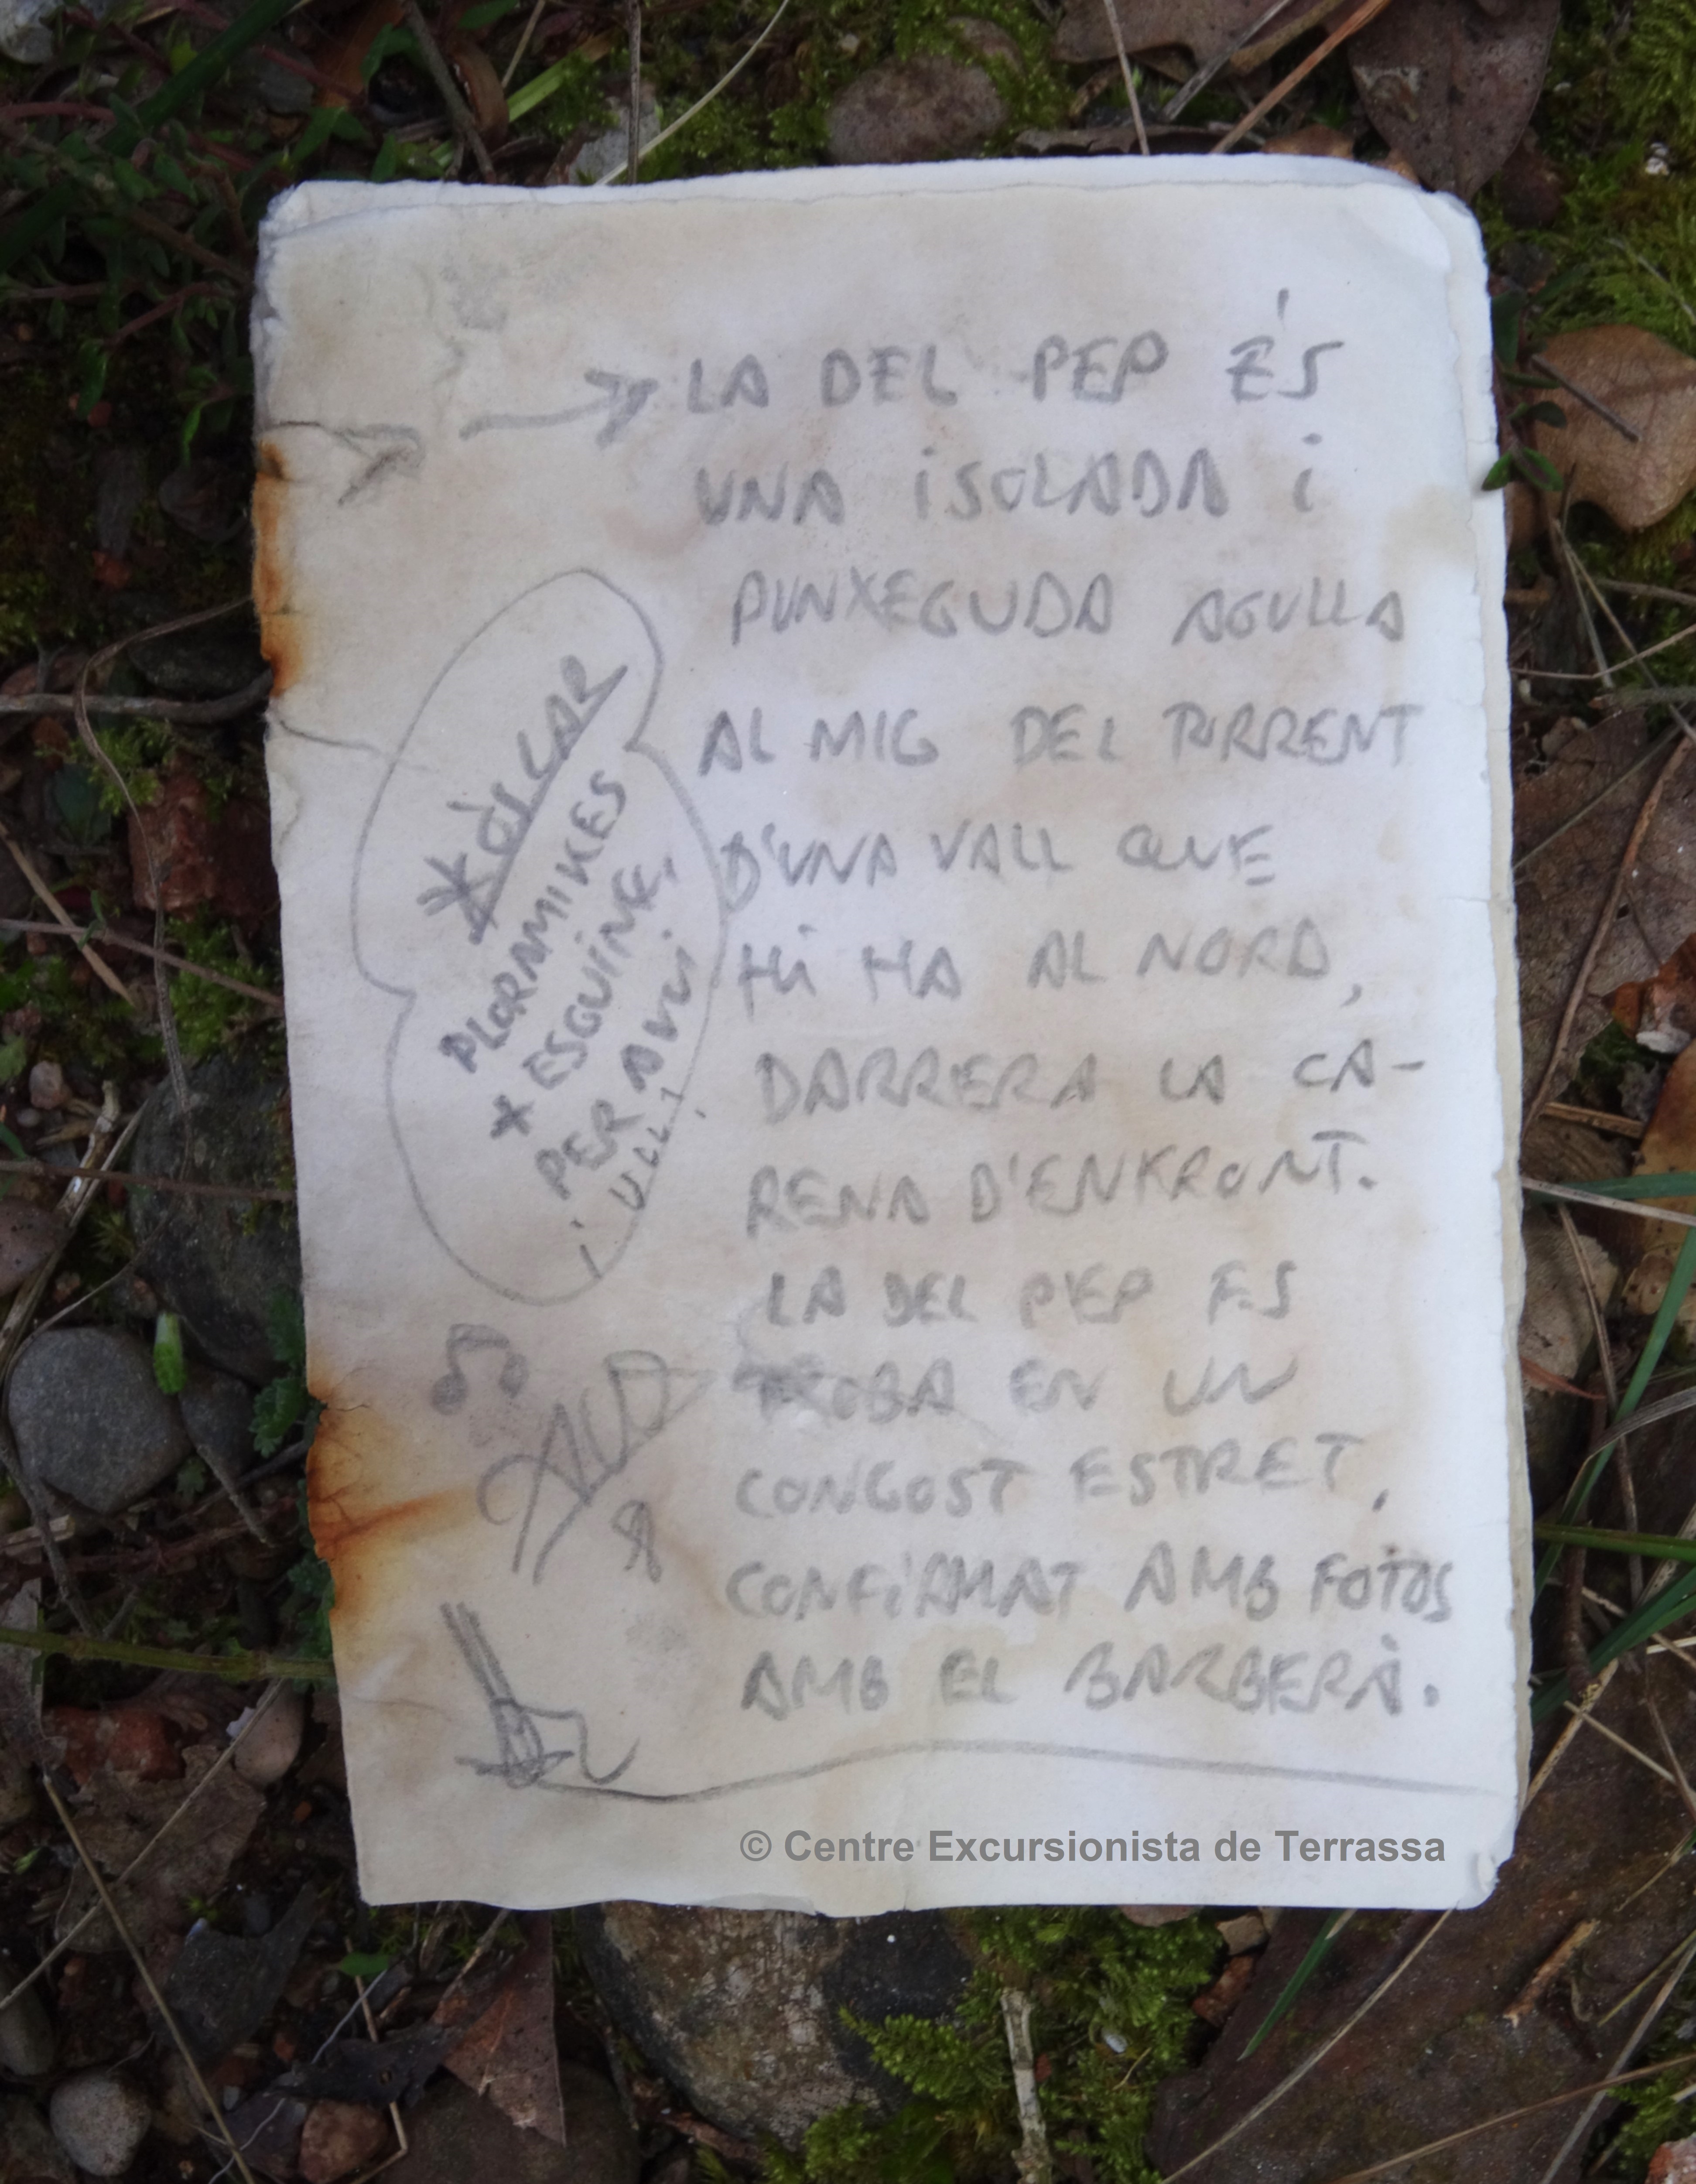 LA DEL PEP ÉS
UNA ISOLADA I
PUNXEGUDA AGULLA
AL MIG DEL TORRENT
D'UNA VALL QUE
HI HA AL NORD,
DARRERA LA CA-
RENA D'ENKRONT.
LA DEL PEP ES
TROBA EN UN
CONGOST ESTRET,
CONFIRMAT AMB FOTOS
AMB EL BARBERÀ.
PLORAMIKES
X ESGUINÇ,
PER AVUI
© Centre Excursionista de Terrassa